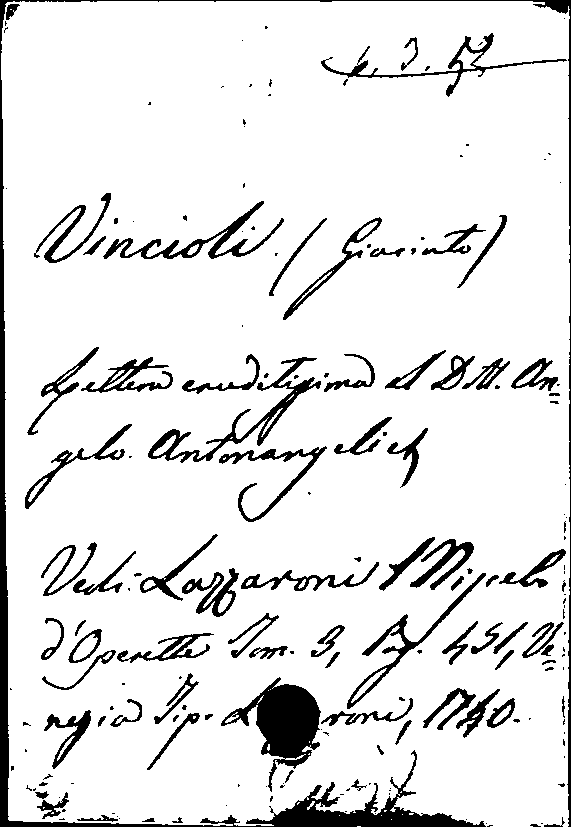 4. 3. 52
Vincioli (Giacinto)
Lettera eruditissima al Dtt. An=
gelo Antonangelieh
Vedi: Lazzaroni
d'Operette Tom. 3, Pag. 451, Ve=
negia Tip. L roni, 1740.